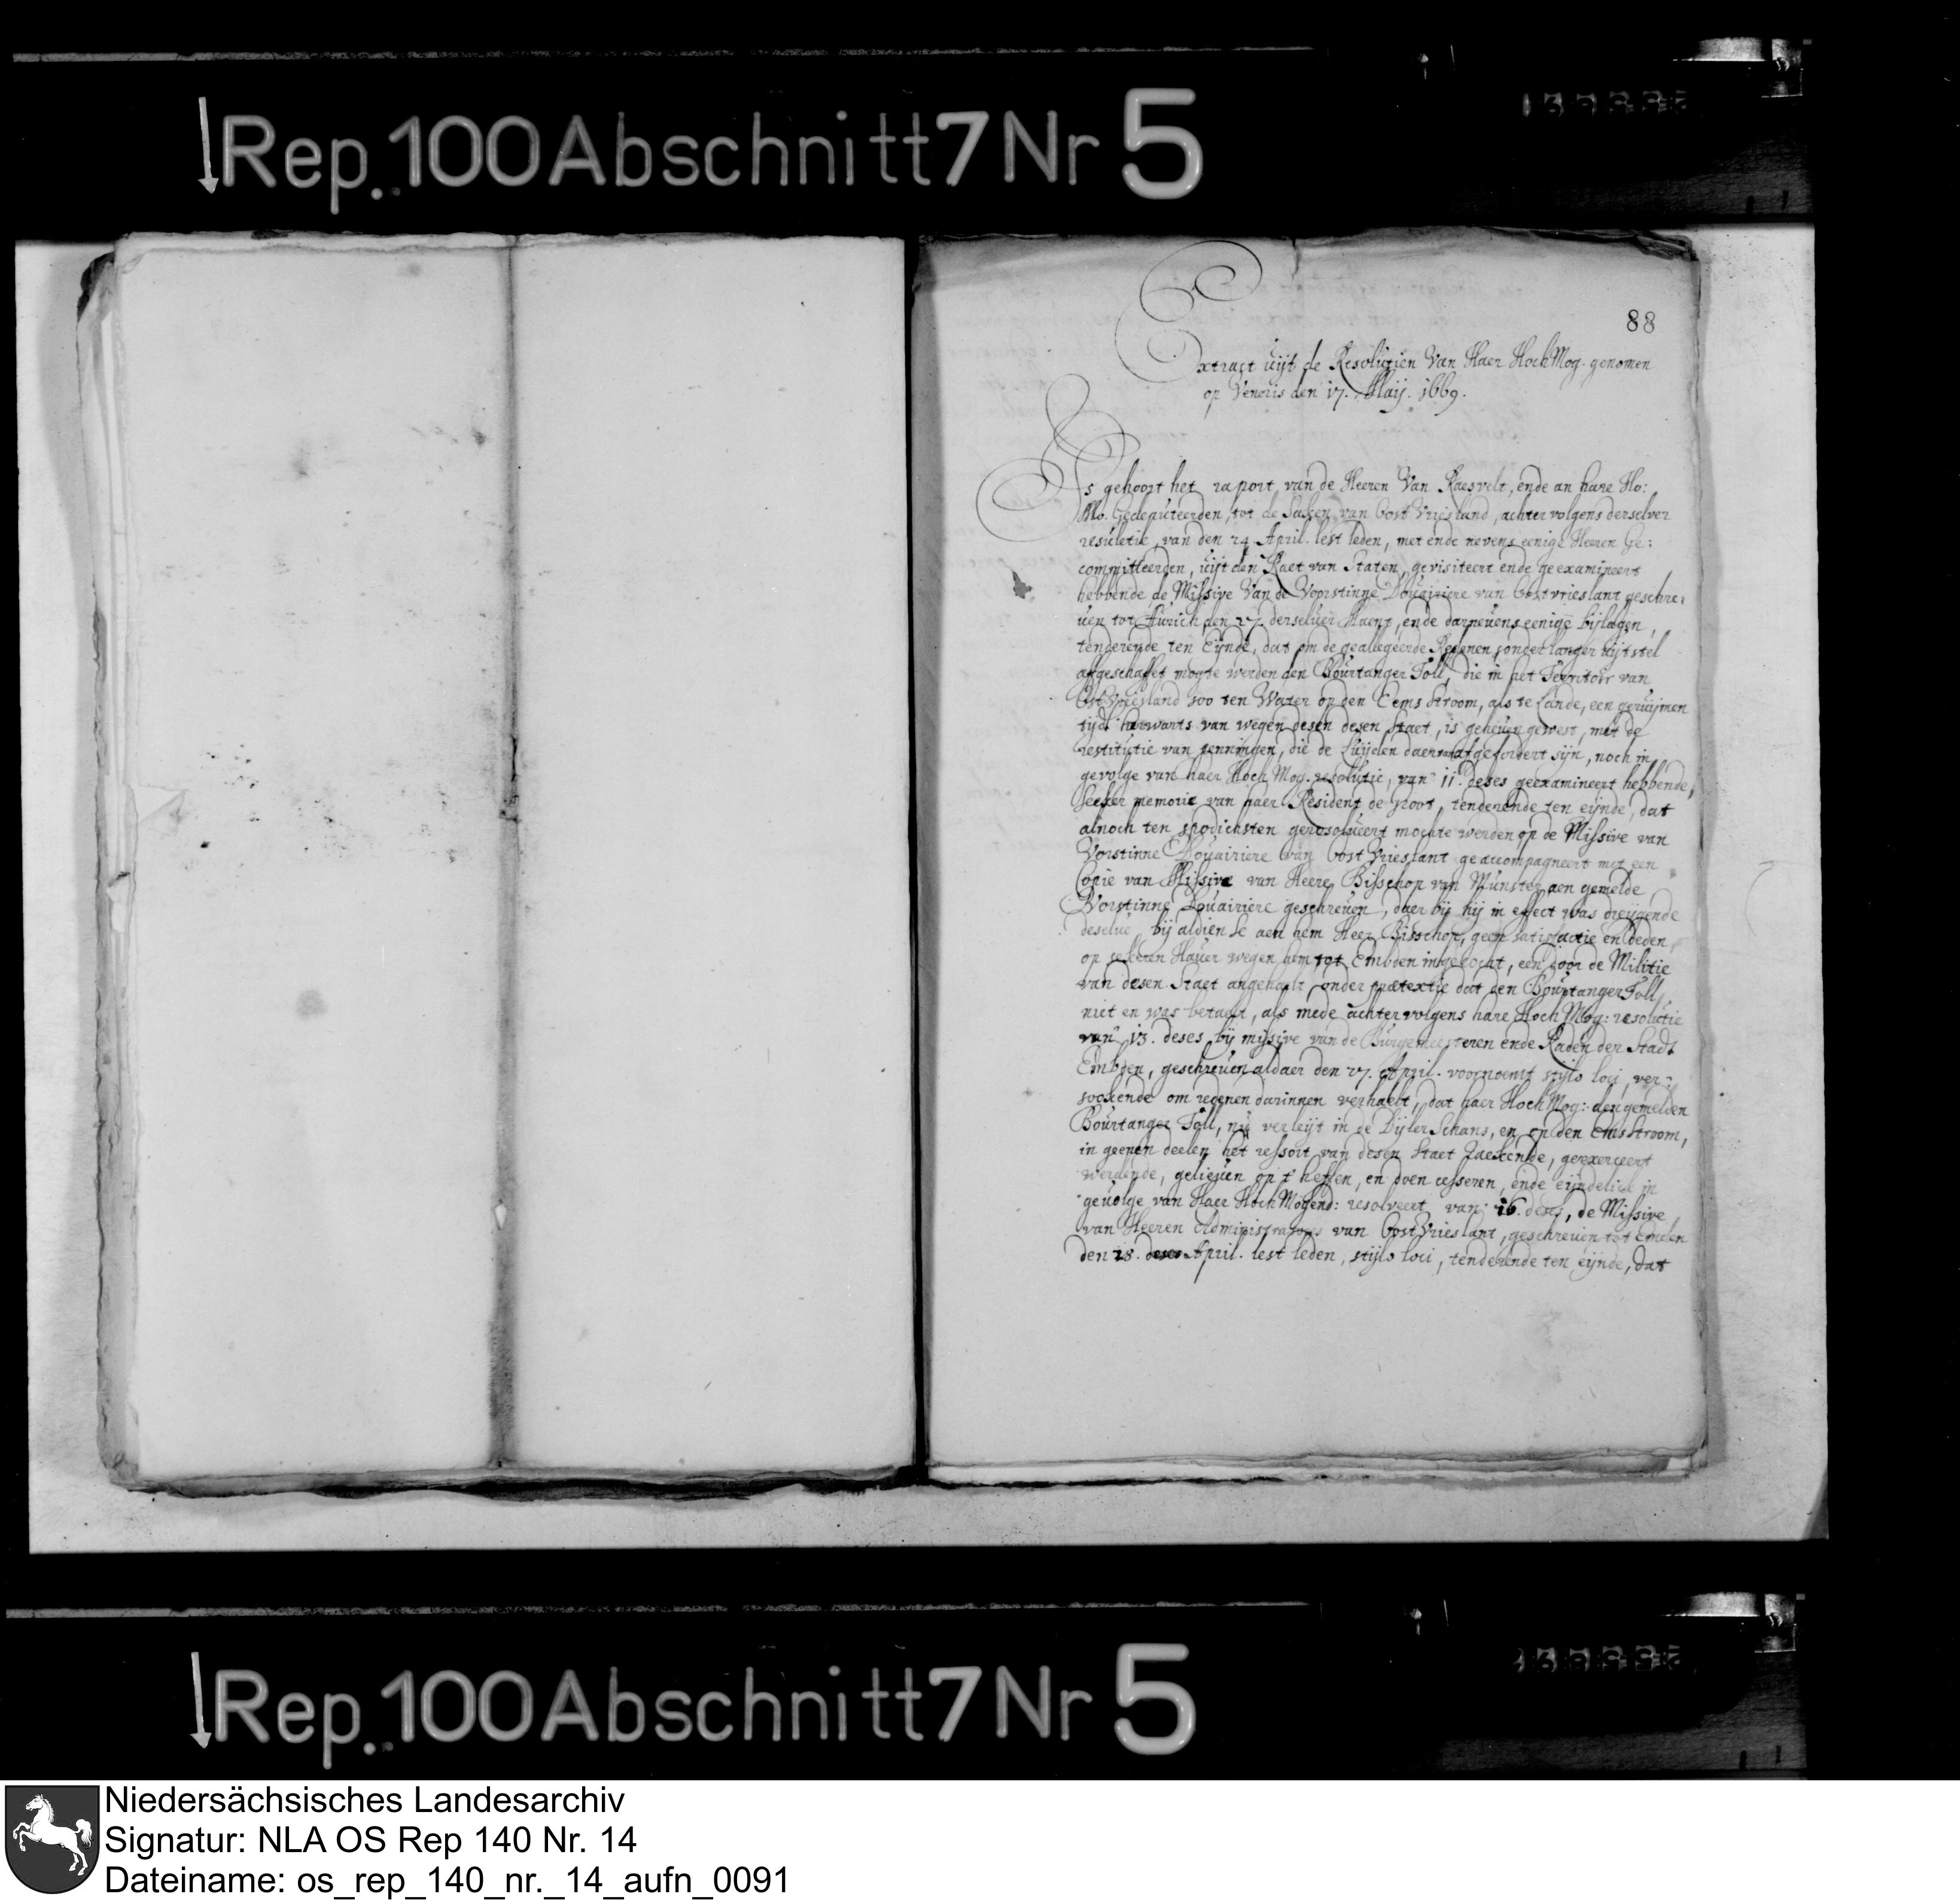 Rep. 100 Abschnitt 7 Nr 5
88
Extract uijt de Resolutien Van Haer Hoch Mog. genomen
op Veneris den 17. Maij. 1669.
Is gehoort het raport van de Heeren Van Raesvelt, ende an hare Ho:
Mo. Gedeputeerden, tot de Saken van Oost Vriesland, achter volgens derselver
resuletie, van den 24 April. lest leden, met ende nevens eenige Heeren Ge:
committeerden, uijt den Raet van Staten, gevisiteert ende geexamineert
hebbende de Missive Van de Voorstinne Douairiere van Oostvrieslant geschre:
uen tot Aurich den 27. derselver Maent, ende darneuens eenige bijlagen,
tenderende ten Eijnde, dat om de geallegeerde Redenen sonder langer uijtstel
affgeschaffet mogte werden den Bourtanger Toll, die in het Territoir van
Ost Vriesland soo ten Water op den Eems Stroom, als te Lande, een geruijmen
tijdt herwarts van wegen desen desen Staet, is geheuen gewest, met de
restitutie van penningen, die de Luijden daer afgefordert sijn, noch in
gevolge van haer Hoch Mog. resolutie, van 11. deses geexamineert hebbende,
Seeker memorie van haer Resident de Groot, tenderende ten eijnde, dat
alnoch ten spodichsten geresolueert mochte werden op de Missive van
Vorstinne Douairiere van Oost Vrieslant geaccompagneert met een
Copie van Missive van Heere Bisschop van Munster aen gemelde
Vorstinne Douairiere geschreuen, daer bij hij in effect was dreijgende
deselue, bij aldien se aen hem Heer Bisschop, geen satisfactie en deden,
op sekeren Hauer wegen hem tot Embden ingekocht, een door de Militie
van desen Staet angehaelt, onder prætextie dat den Bourtanger Toll
niet en was betaelt, als mede achtervolgens hare Hoch Mog: resolutie
van 13. deses, bij missive van de Burgemeesteren ende Raden der Stadt
Embden, geschreuen aldaer den 27. April. voornoemt stijlo loci, ver:
soekende om redenen darinnen verhaelt, dat haer Hoch Mog: den gemelden
Bourtanger Toll, nu verleijt in de Dijler Schans, en op den Ems Stroom,
in geenen deelen het ressort van desen Staet Raekende, geexerceert
werdende, gelieuen op t' heffen, en doen cesseren, ende eijndelick in
geuolge van Haer Hoch Mogend: resolveert van 16. deses, de Missive
van Heeren Administratores van Oost Vrieslant, geschreuen tot Emden
den 28. April. lest leden, stijlo loci, tenderende ten eijnde, dat
Rep. 100 Abschnitt 7 Nr 5
Niedersächsisches Landesarchiv
Signatur: NLA OS Rep 140 Nr. 14
Dateiname: os_rep_140_nr._14_aufn_0091